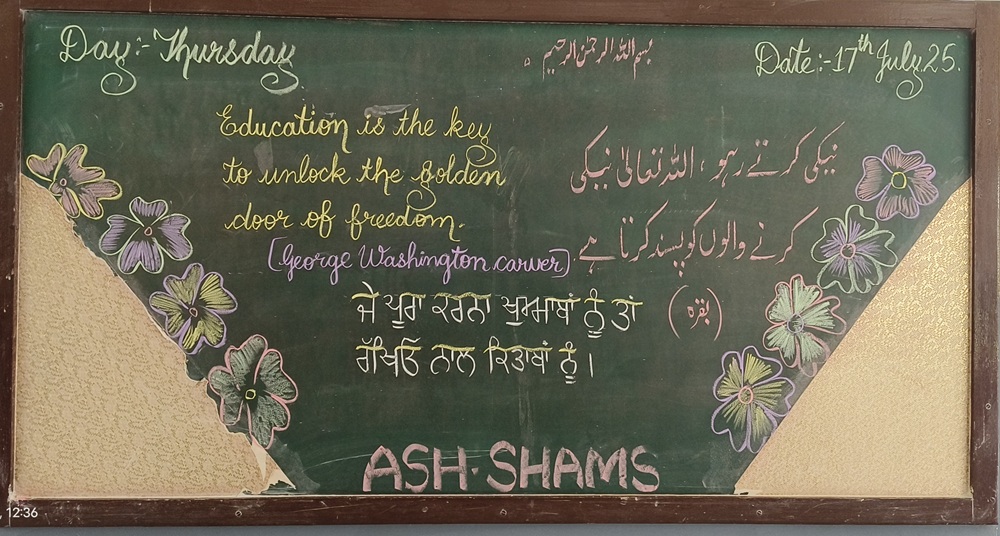 Day:- Thursday
بسم اللہ الرحمٰن الرحیم
Date:- 17th July, 25.
Education is the key
to unlock the golden
door of freedom.
[George Washington carver]
نیکی کرتے رہو، اللہ تعالیٰ نیکی
کرنے والوں کو پسند کرتا ہے.
(بقرہ)
ਜੇ ਪੂਰਾ ਕਰਨਾ ਖੁਆਬਾਂ ਨੂੰ ਤਾਂ
ਨਾਲ ਕਿਤਾਬਾਂ ਨੂੰ।
ASH-SHAMS
12:36